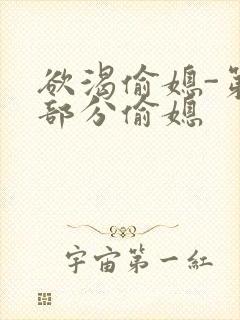 欲渴偷媳-第
部分偷媳
宇宙第一紅